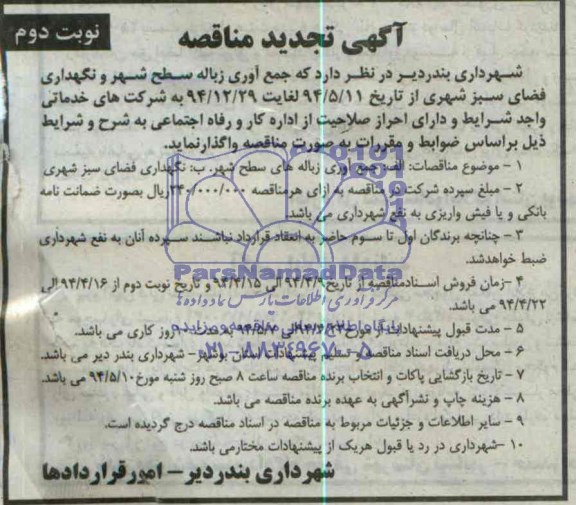 نوبت دوم
آگهی تجدید مناقصه
شهرداری بندردیر در نظر دارد که جمع آوری زباله سطح شهر و نگهداری
فضای سبز شهری از تاریخ ۹۴/۵/۱۱ لغایت ۹۴/۱۲/۲۹ به شرکت های خدماتی
واجد شرایط و دارای احراز صلاحیت از اداره کار و رفاه اجتماعی به شرح و شرایط
ذیل براساس ضوابط و مقررات به صورت مناقصه واگذارنماید.
۱ - موضوع مناقصات: الف: جمع آوری زباله های سطح شهر، ب: نگهداری فضای سبز شهری
۲ - مبلغ سپرده شرکت در مناقصه به ازای هرمناقصه ۲۴۰/۰۰۰/۰۰۰ریال بصورت ضمانت نامه
بانکی و یا فیش واریزی به نفع شهرداری می باشد.
۳ - چنانچه برندگان اول تا سوم حاضر به انعقاد قرارداد نباشند سپرده آنان به نفع شهرداری
ضبط خواهدشد.
۴ -زمان فروش اسنادمناقصه از تاریخ ۹۴/۴/۹ الی ۹۴/۴/۱۵ و تاریخ نوبت دوم از ۹۴/۴/۱۶ الی
۹۴/۴/۲۲ می باشد.
۵ - مدت قبول پیشنهادات از مورخ الی روز کاری می باشد.
۶ - محل دریافت اسناد مناقصه و تسلیم پیشنهادات استان بوشهر- شهرداری بندر دیر می باشد.
۷ - تاریخ بازگشایی پاکات و انتخاب برنده مناقصه ساعت ۸ صبح روز شنبه مورخ ۹۴/۵/۱۰ می باشد.
۸ - هزینه چاپ و نشرآگهی به عهده برنده مناقصه می باشد.
۹ - سایر اطلاعات و جزئیات مربوط به مناقصه در اسناد مناقصه درج گردیده است.
۱۰ -شهرداری در رد یا قبول هریک از پیشنهادات مختارمی باشد.
شهرداری بندردیر – امورقراردادها
ParsNamadData
مرکز فرآوری اطلاعات پارس نماد داده ها
۰۲۱-۸۸۳۴۹۶۷۰-۵